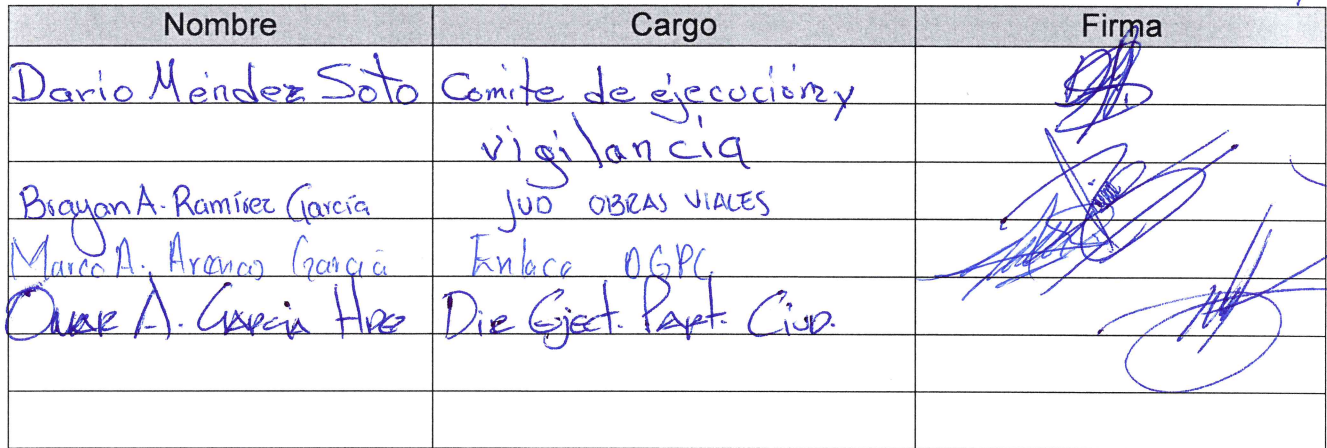 Nombre Cargo Firma
Dario Méndez Soto Comite de ejecución y
vigilancia
Brayan A. Ramírez García JUD OBRAS VIALES
Marco A. Arenas García Enlace DGPC
Omar A. García Hdz Dir Eject. Part. Ciud.